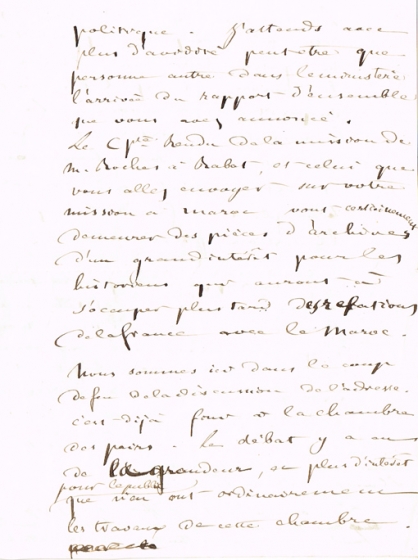 politique. J'attends avec
plus d'avidité peut-être que
personne autre dans le ministère
l'arrivée du rapport d'ensemble
que vous avez annoncé.
Le Cpte Rendu de la mission de
M. Roches à Rabat, et celui que
vous allez envoyer sur votre
mission à Maroc vont certainement
demeurer des pièces d'archives
d'un grand intérêt pour les
historiens qui auront à
s'occuper plus tard des relations
de la France avec le Maroc.
Nous sommes ici dans le coup
de feu de la discussion de l'adresse.
c'est déjà fini à la chambre
des pairs. Le débat y a eu
de la grandeur, et plus d'intérêt
pour le public
que n'en ont ordinairement
les travaux de cette chambre.